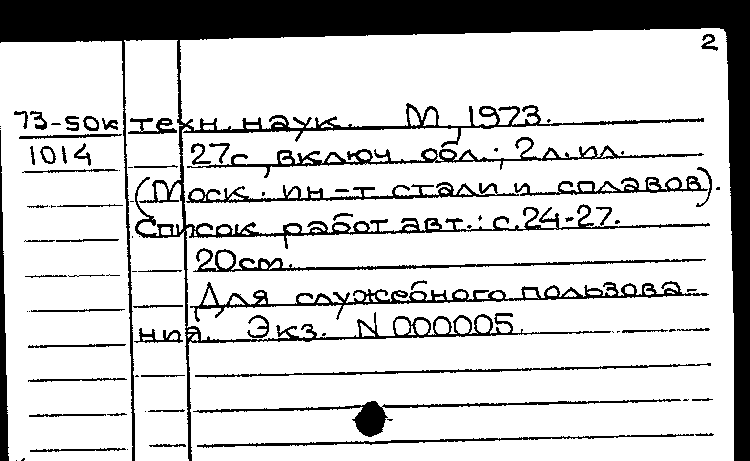 2
73-50к техн. наук. М., 1973.
1014 27с., включ. обл.; 2 л. ил.
(Моск. ин-т стали и сплавов).
Список работ авт.: с. 24-27.
20 cm.
Для служебного пользова-
ния. Экз. N 000005.